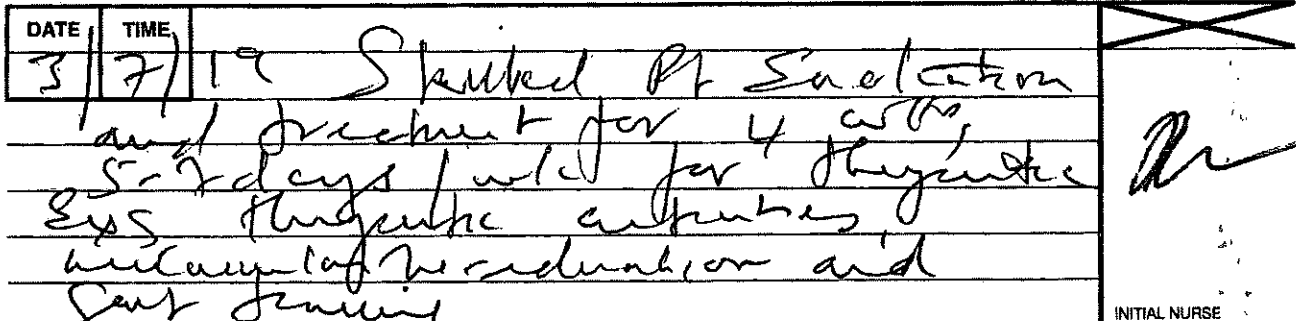 DATE TIME
3/7/19 Skilled PT Evaluation
and treatment for 4 wks,
5-7 days/wk for therapeutic
Exs, therapeutic activities,
neuromuscular re-education and
Gait training
INITIAL NURSE